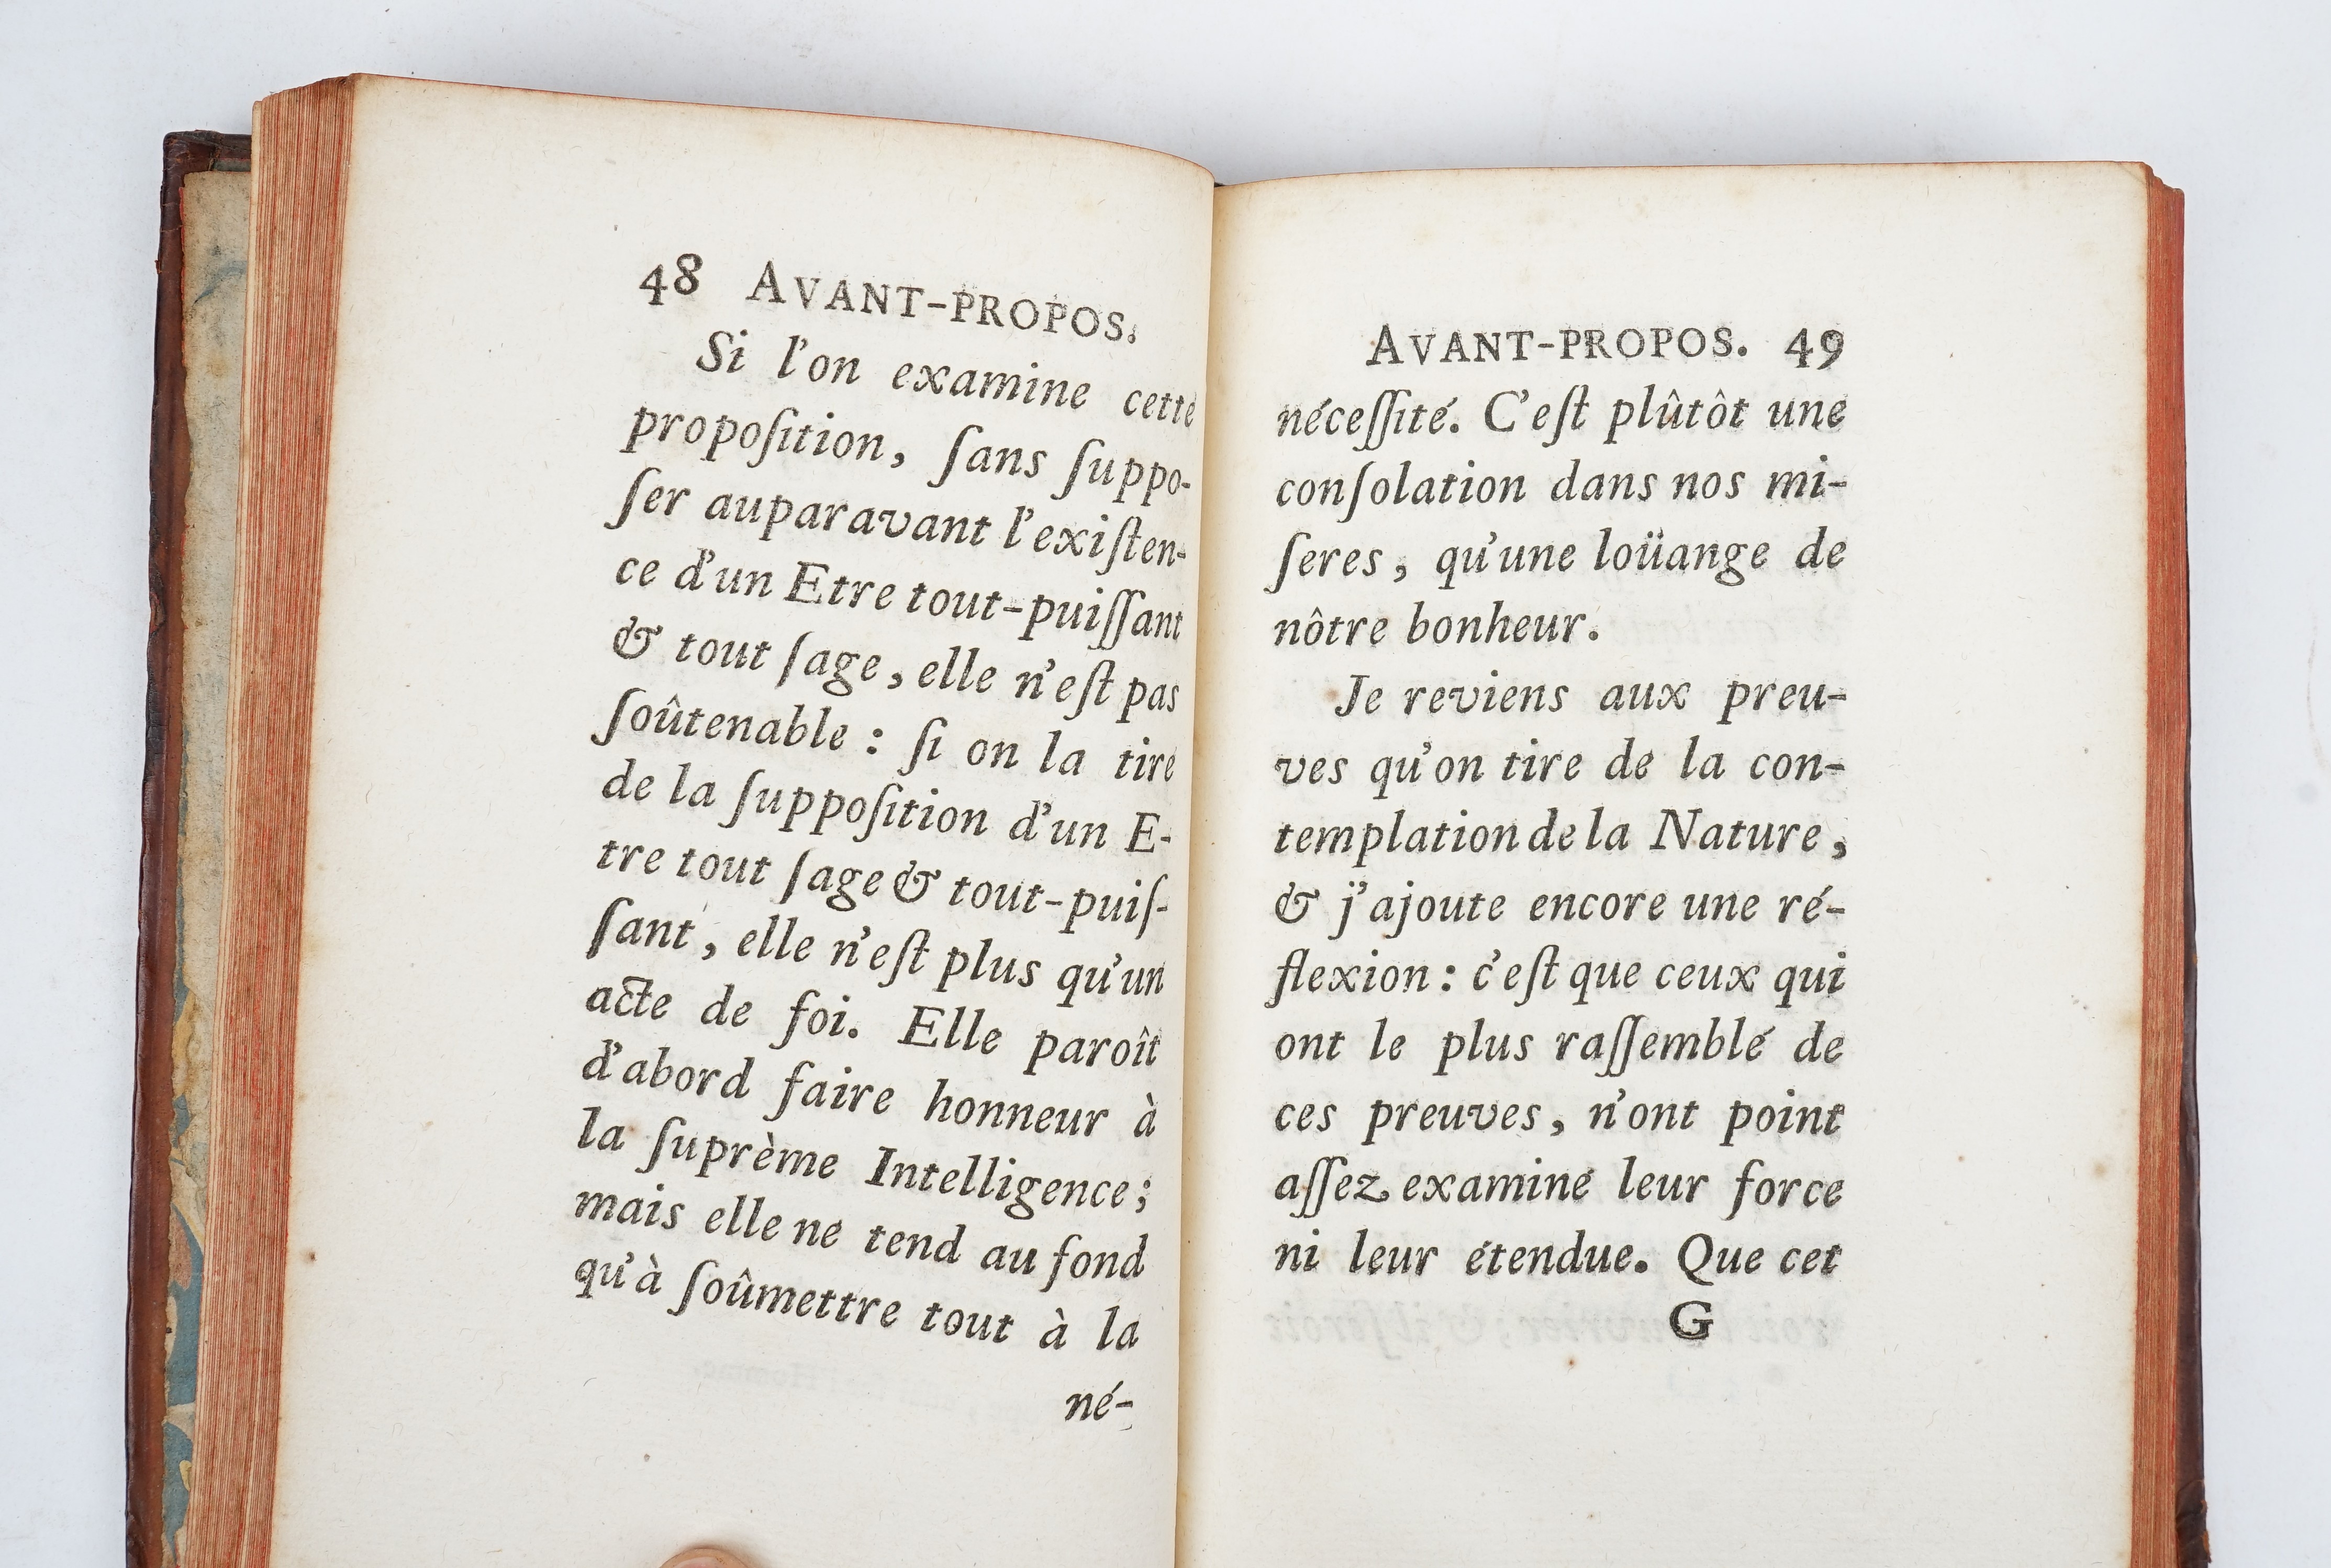 48 AVANT-PROPOS.
Si l'on examine cette
propoſition, ſans ſuppo-
ſer auparavant l'exiſten-
ce d'un Etre tout-puiſſant
& tout ſage, elle n'eſt pas
ſoûtenable : ſi on la tire
de la ſuppoſition d'un E-
tre tout ſage & tout-puiſ-
ſant, elle n'eſt plus qu'un
acte de foi. Elle paroît
d'abord faire honneur à
la ſuprème Intelligence;
mais elle ne tend au fond
qu'à ſoûmettre tout à la
né-
AVANT-PROPOS. 49
néceſſité. C'eſt plûtôt une
conſolation dans nos mi-
ſeres, qu'une loüange de
nôtre bonheur.
Je reviens aux preu-
ves qu'on tire de la con-
templation de la Nature,
& j'ajoute encore une ré-
flexion : c'eſt que ceux qui
ont le plus raſſemblé de
ces preuves, n'ont point
aſſez examiné leur force
ni leur étendue. Que cet
G